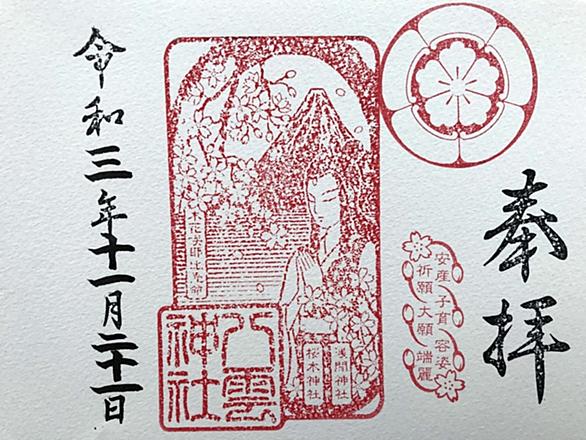 奉拝
安産 子育 容姿
祈願 大願 端麗
木花咲耶姫命
浅間神社
桜木神社
八雲
神社
令和三年十一月二十一日